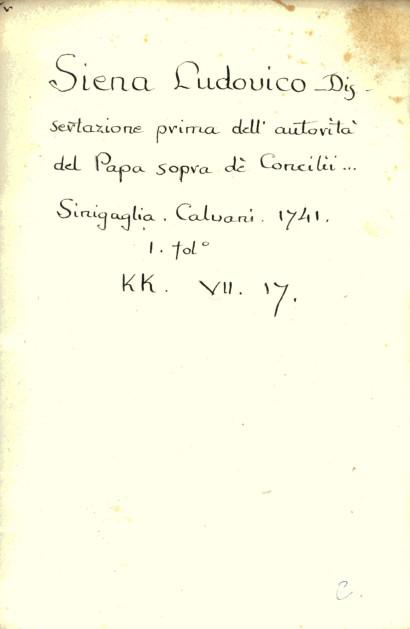 Siena Ludovico Dis-
sertazione prima dell' autorità
del Papa sopra dè Concilii...
Sinigaglia. Calvani. 1741.
1. fol°
KK. VII. 17.
C.